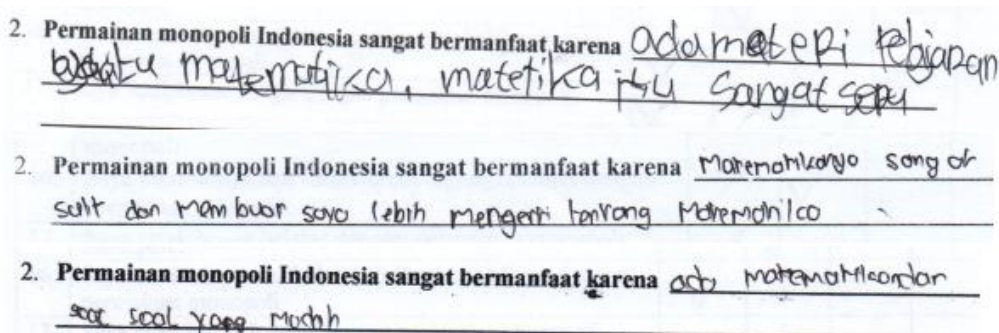 2. Permainan monopoli Indonesia sangat bermanfaat karena ada materi
matematika, matetika itu sangat
2. Permainan monopoli Indonesia sangat bermanfaat karena Matematikanya sangat
sulit dan membuat saya lebih mengerti tentang Matematika
2. Permainan monopoli Indonesia sangat bermanfaat karena ada matematika dan
soal yang mudah